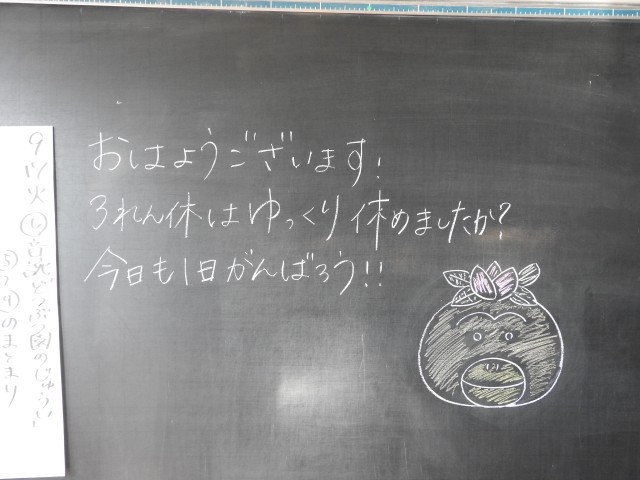 おはようございます!
3れん休はゆっくり休めましたか?
今日も1日がんばろう!!
9/17火 ⓛ音読どうぶつ園のじゅうい
⑤〜⑨のまとまり